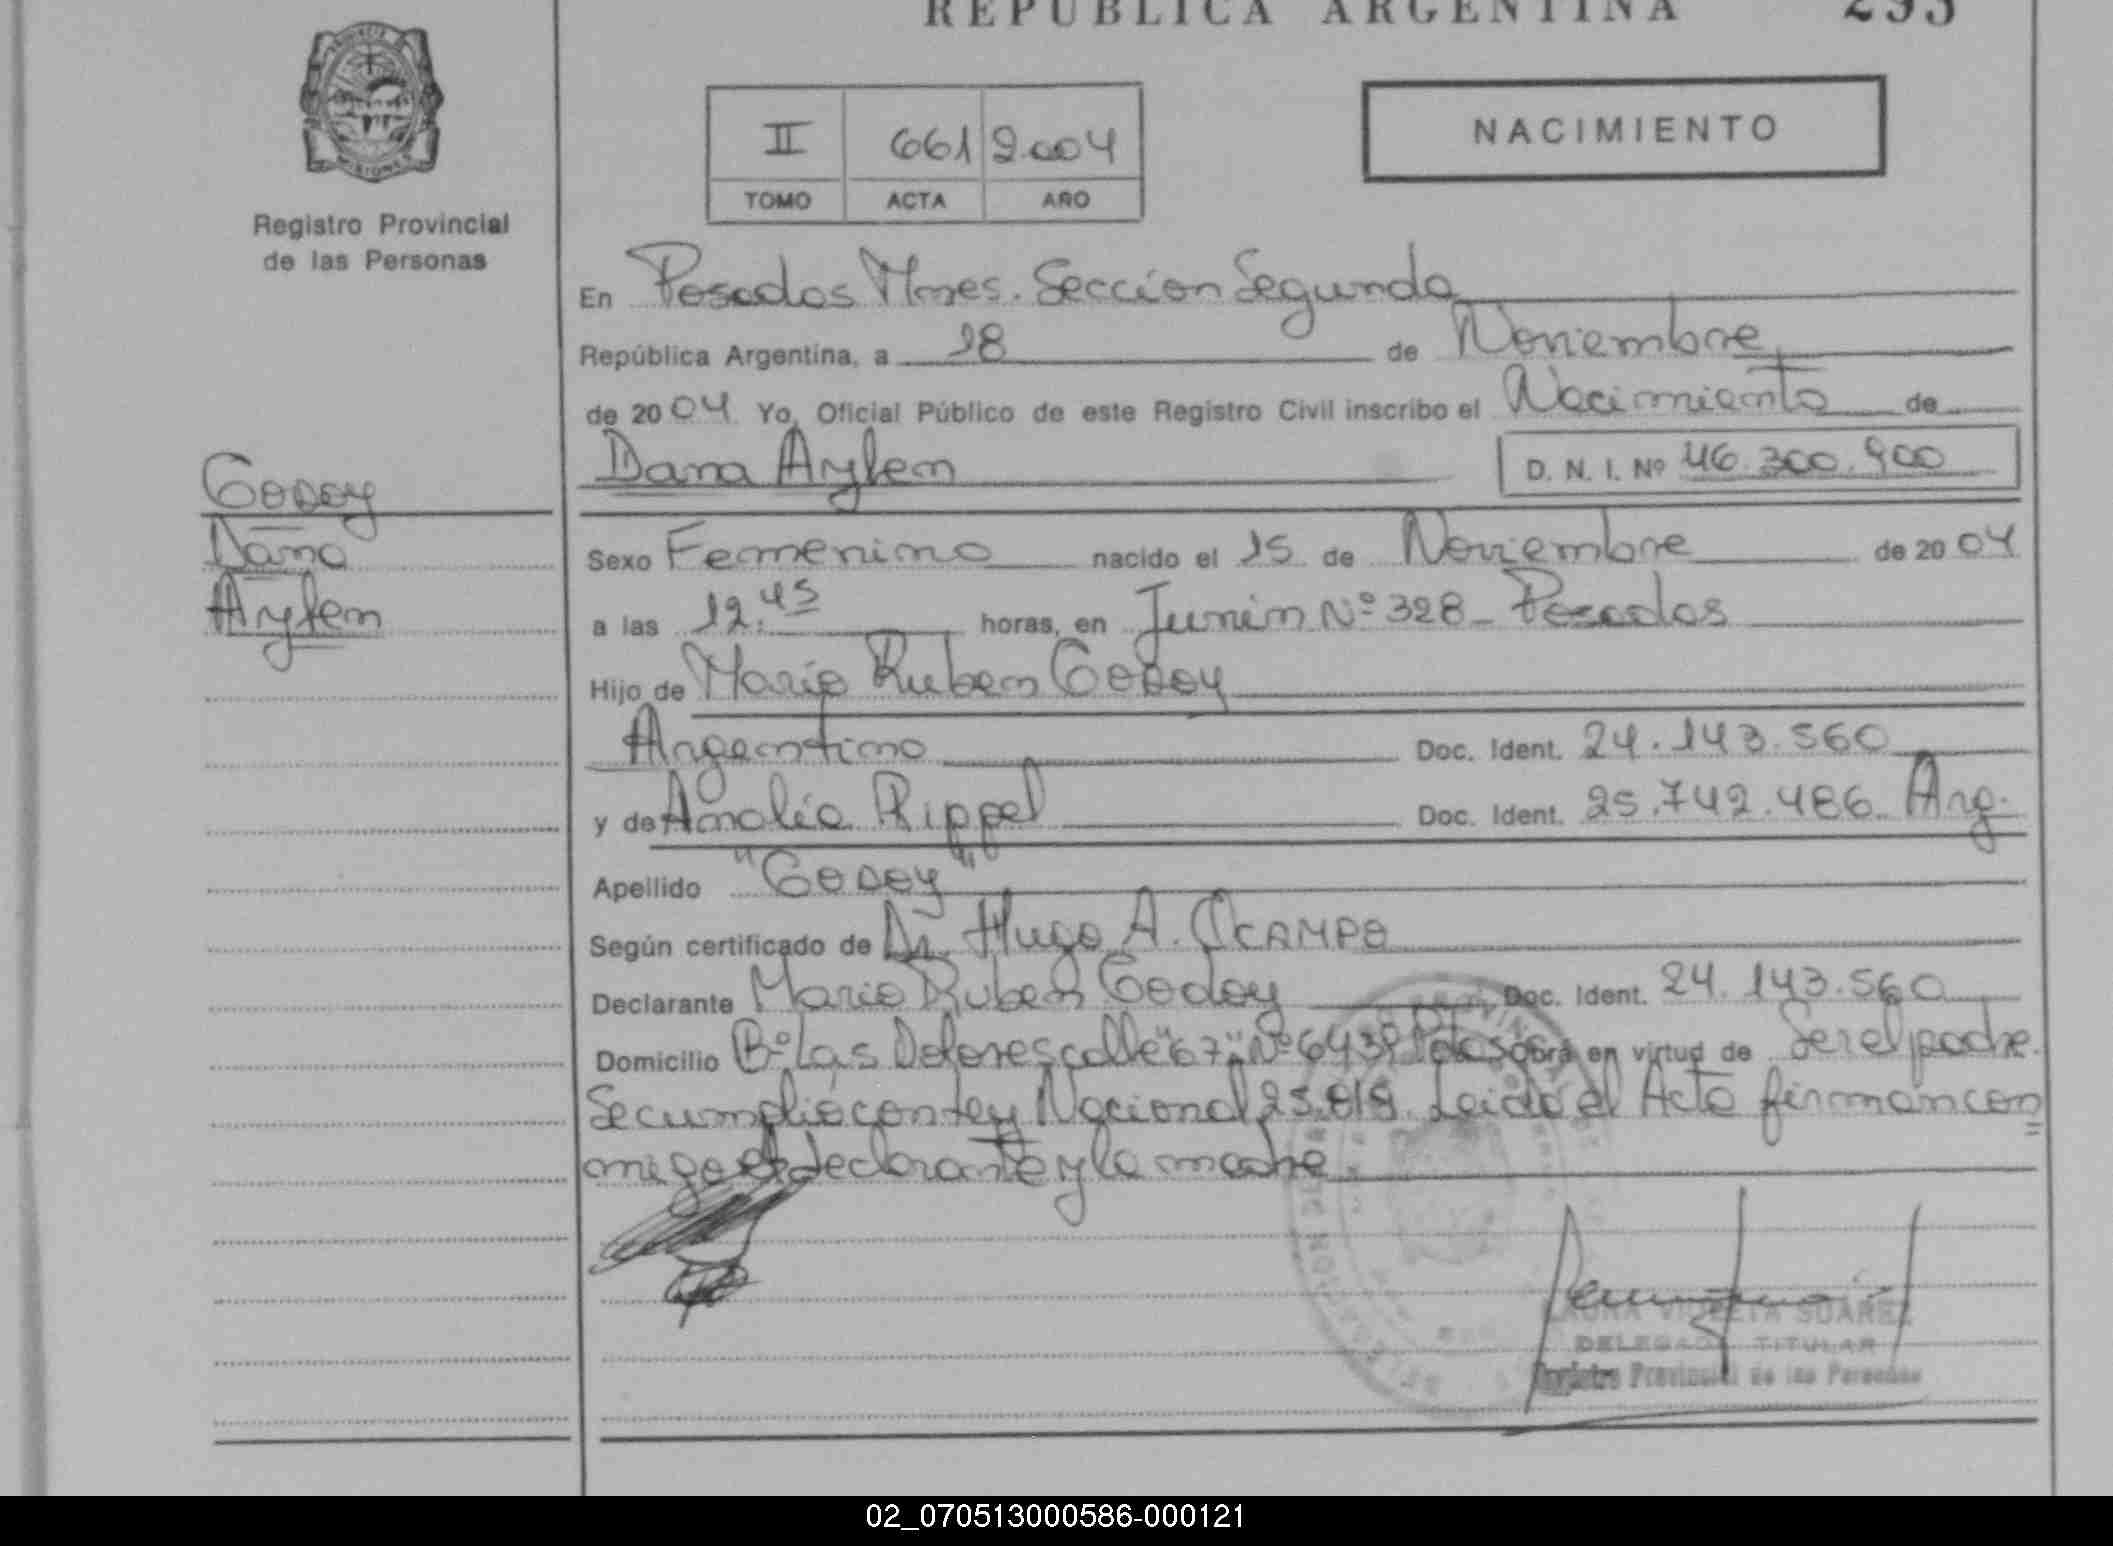 REPUBLICA ARGENTINA 295
Registro Provincial
de las Personas
II 661 2.004
TOMO ACTA AÑO
NACIMIENTO
En Posadas Mnes. Sección Segunda
República Argentina, a 18 de Noviembre
de 2004 Yo, Oficial Público de este Registro Civil inscribo el Nacimiento de
Dana Aylem D. N. I. Nº 46.300.900
Godoy
Dana
Aylem
Sexo Femenino nacido el 15 de Noviembre de 2004
a las 12:45 horas, en Junín Nº 328 - Posadas
Hijo de Mario Ruben Godoy
Argentino Doc. Ident. 24.143.560
y de Amalia Rippel Doc. Ident. 25.742.486 Arg.
Apellido "Godoy"
Según certificado de Dr. Hugo A. Ocampo
Declarante Mario Ruben Godoy Doc. Ident. 24.143.560
Domicilio Bº Las Dolores calle "67" Nº 6439 Pdas obra en virtud de Ser el padre.
Se cumplió con Ley Nacional 25.819. Leída el Acta firman con
migo el declarante y la madre
LAURA VIOLETA SUAREZ
DELEGADA TITULAR
Registro Provincial de las Personas
02_070513000586-000121